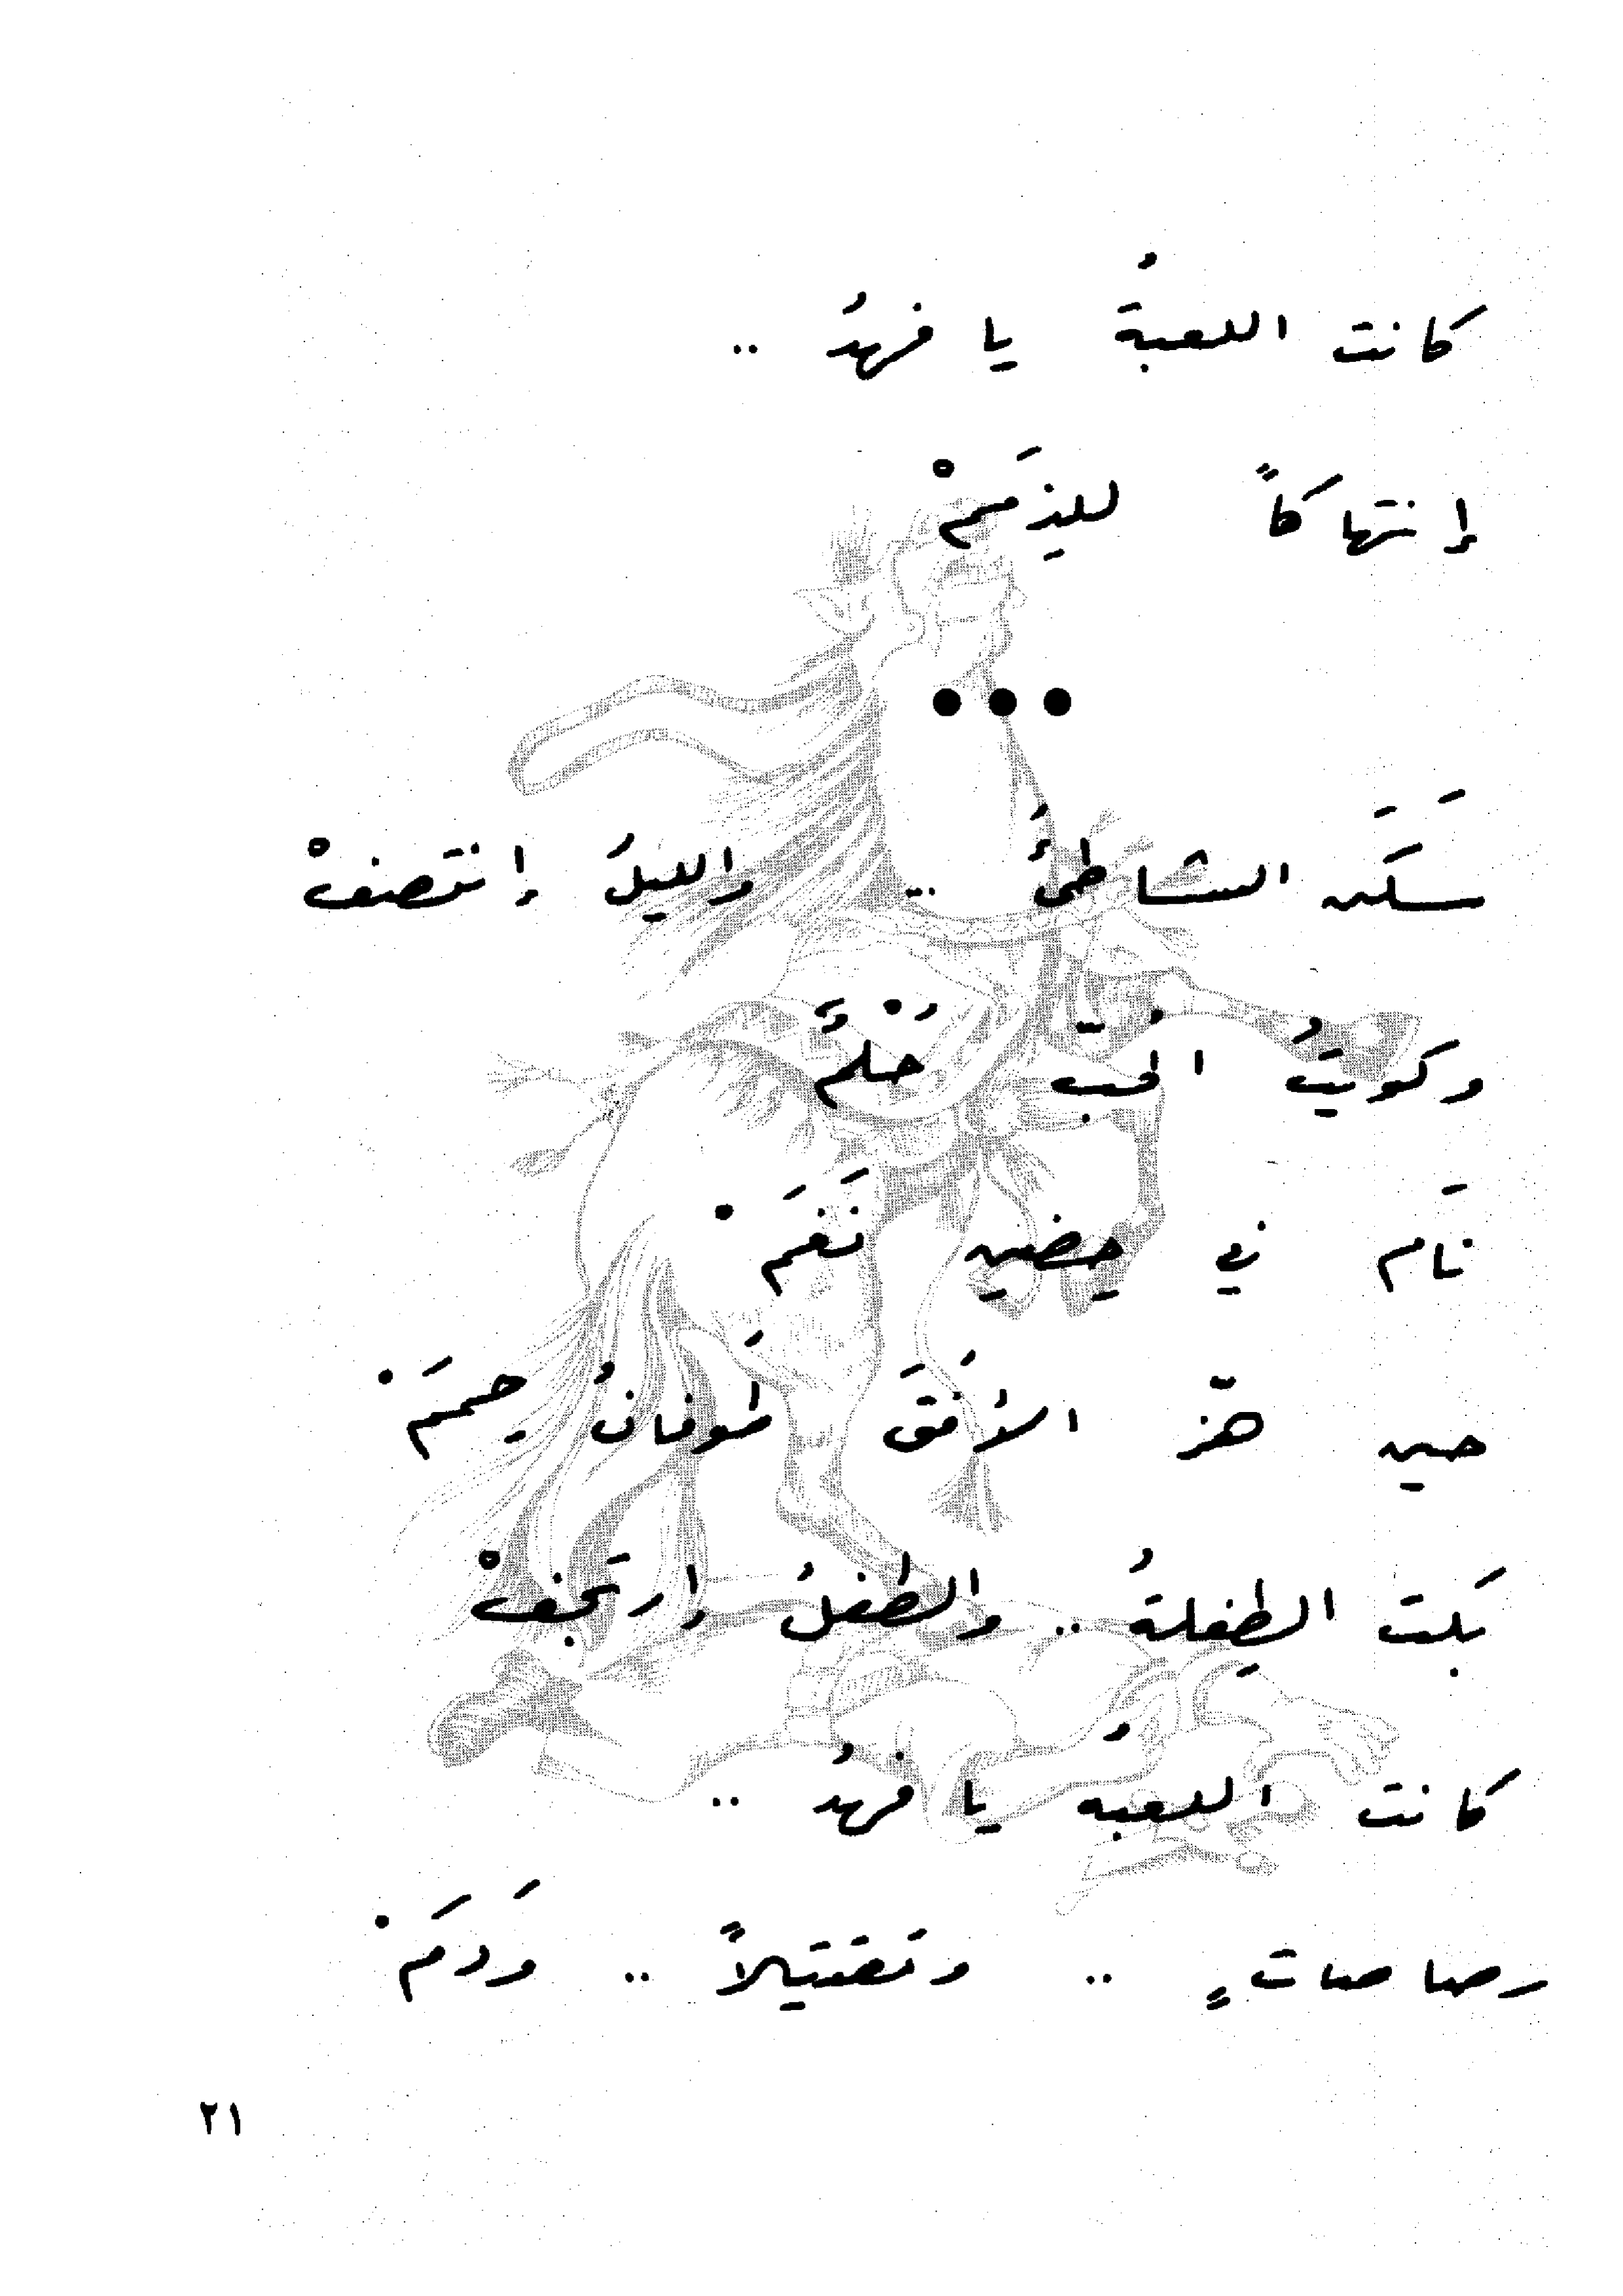 كانت اللعبةُ يا فهدُ ..
إنتهاكاً للذِمَمْ
•••
سَكَن الشاطئُ .. والليلُ إنتصفْ
وكويتُ الحُبّ حُلْمٌ
نَام في حِضنِ نَغَمْ
حين هزّ الأفقَ طوفانُ حِمَمْ
بَكت الطِفلةُ .. والطفلُ إرتَجفْ
كانت اللعبةُ يا فهدُ ..
رصاصاتٍ .. وتَقتيلاً .. وَدَمْ
٢١